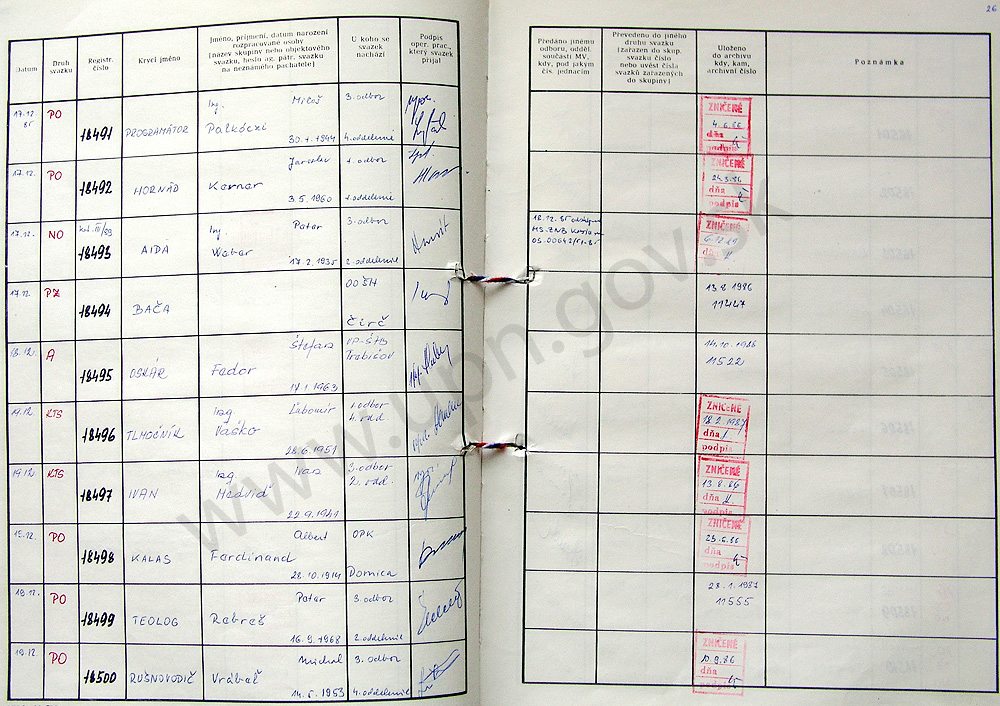 26
Datum
Druh svazku
Registr. číslo
Krycí jméno
Jméno, příjmení, datum narození rozpracované osoby (název skupiny nebo objektového svazku, heslo ag. pátr. svazku na neznámého pachatele)
U koho se svazek nachází
Podpis oper. prac., který svazek přijal
Předáno jinému odboru, odděl. součásti MV, kdy, pod jakým čís. jednacím
Převedeno do jiného druhu svazku (zařazen do skup. svazku číslo nebo uvést čísla svazků zařazených do skupiny)
Uloženo do archivu kdy, kam, archivní číslo
Poznámka
17.12. 85 PO 18491 PROGRAMÁTOR Ing. Miloš Palkóczi 30.1.1944 3. odbor 4. oddelenie
ZNIČENÉ 4.6.86 dňa podpis
17.12. PO 18492 HORNÁD Jaroslav Karnar 3.5.1960 1. odbor 1. oddelenie
ZNIČENÉ 24.3.86 dňa podpis
17.12. NO 18493 AIDA Ing. Peter Weber 17.2.1935 3. odbor 2. oddelenie
18.12.85
ZNIČENÉ dňa
17.12. PZ 18494 BAČA OO ŠH Čirč
13.8.1986 11447
18.12. A 18495 OSKÁR Štefan Fedor 17.1.1963 VP-ŠtB Trebišov
14.10.1986 11522
19.12. KTS 18496 TLMOČNÍK Ing. Ľubomír Vaśko 28.6.1951 1. odbor 4. odd.
ZNIČENÉ 18.2.1987 dňa podpis
19.12. KTS 18497 IVAN Ing. Ivan Medviď 22.9.1941 2. odbor 2. odd.
ZNIČENÉ 13.8.86 dňa podpis
19.12. PO 18498 KALAS Albert Ferdinand 28.10.1914 OPK Domica
ZNIČENÉ 23.6.86 dňa podpis
19.12. PO 18499 TEOLOG Peter Rebreš 16.9.1968 3. odbor 2. oddelenie
28.1.1987 11555
19.12. PO 18500 RUŠNOVODIČ Michal Vrábeľ 14.5.1953 3. odbor 4. oddelenie
ZNIČENÉ 10.9.86 dňa podpis
www.upn.gov.sk